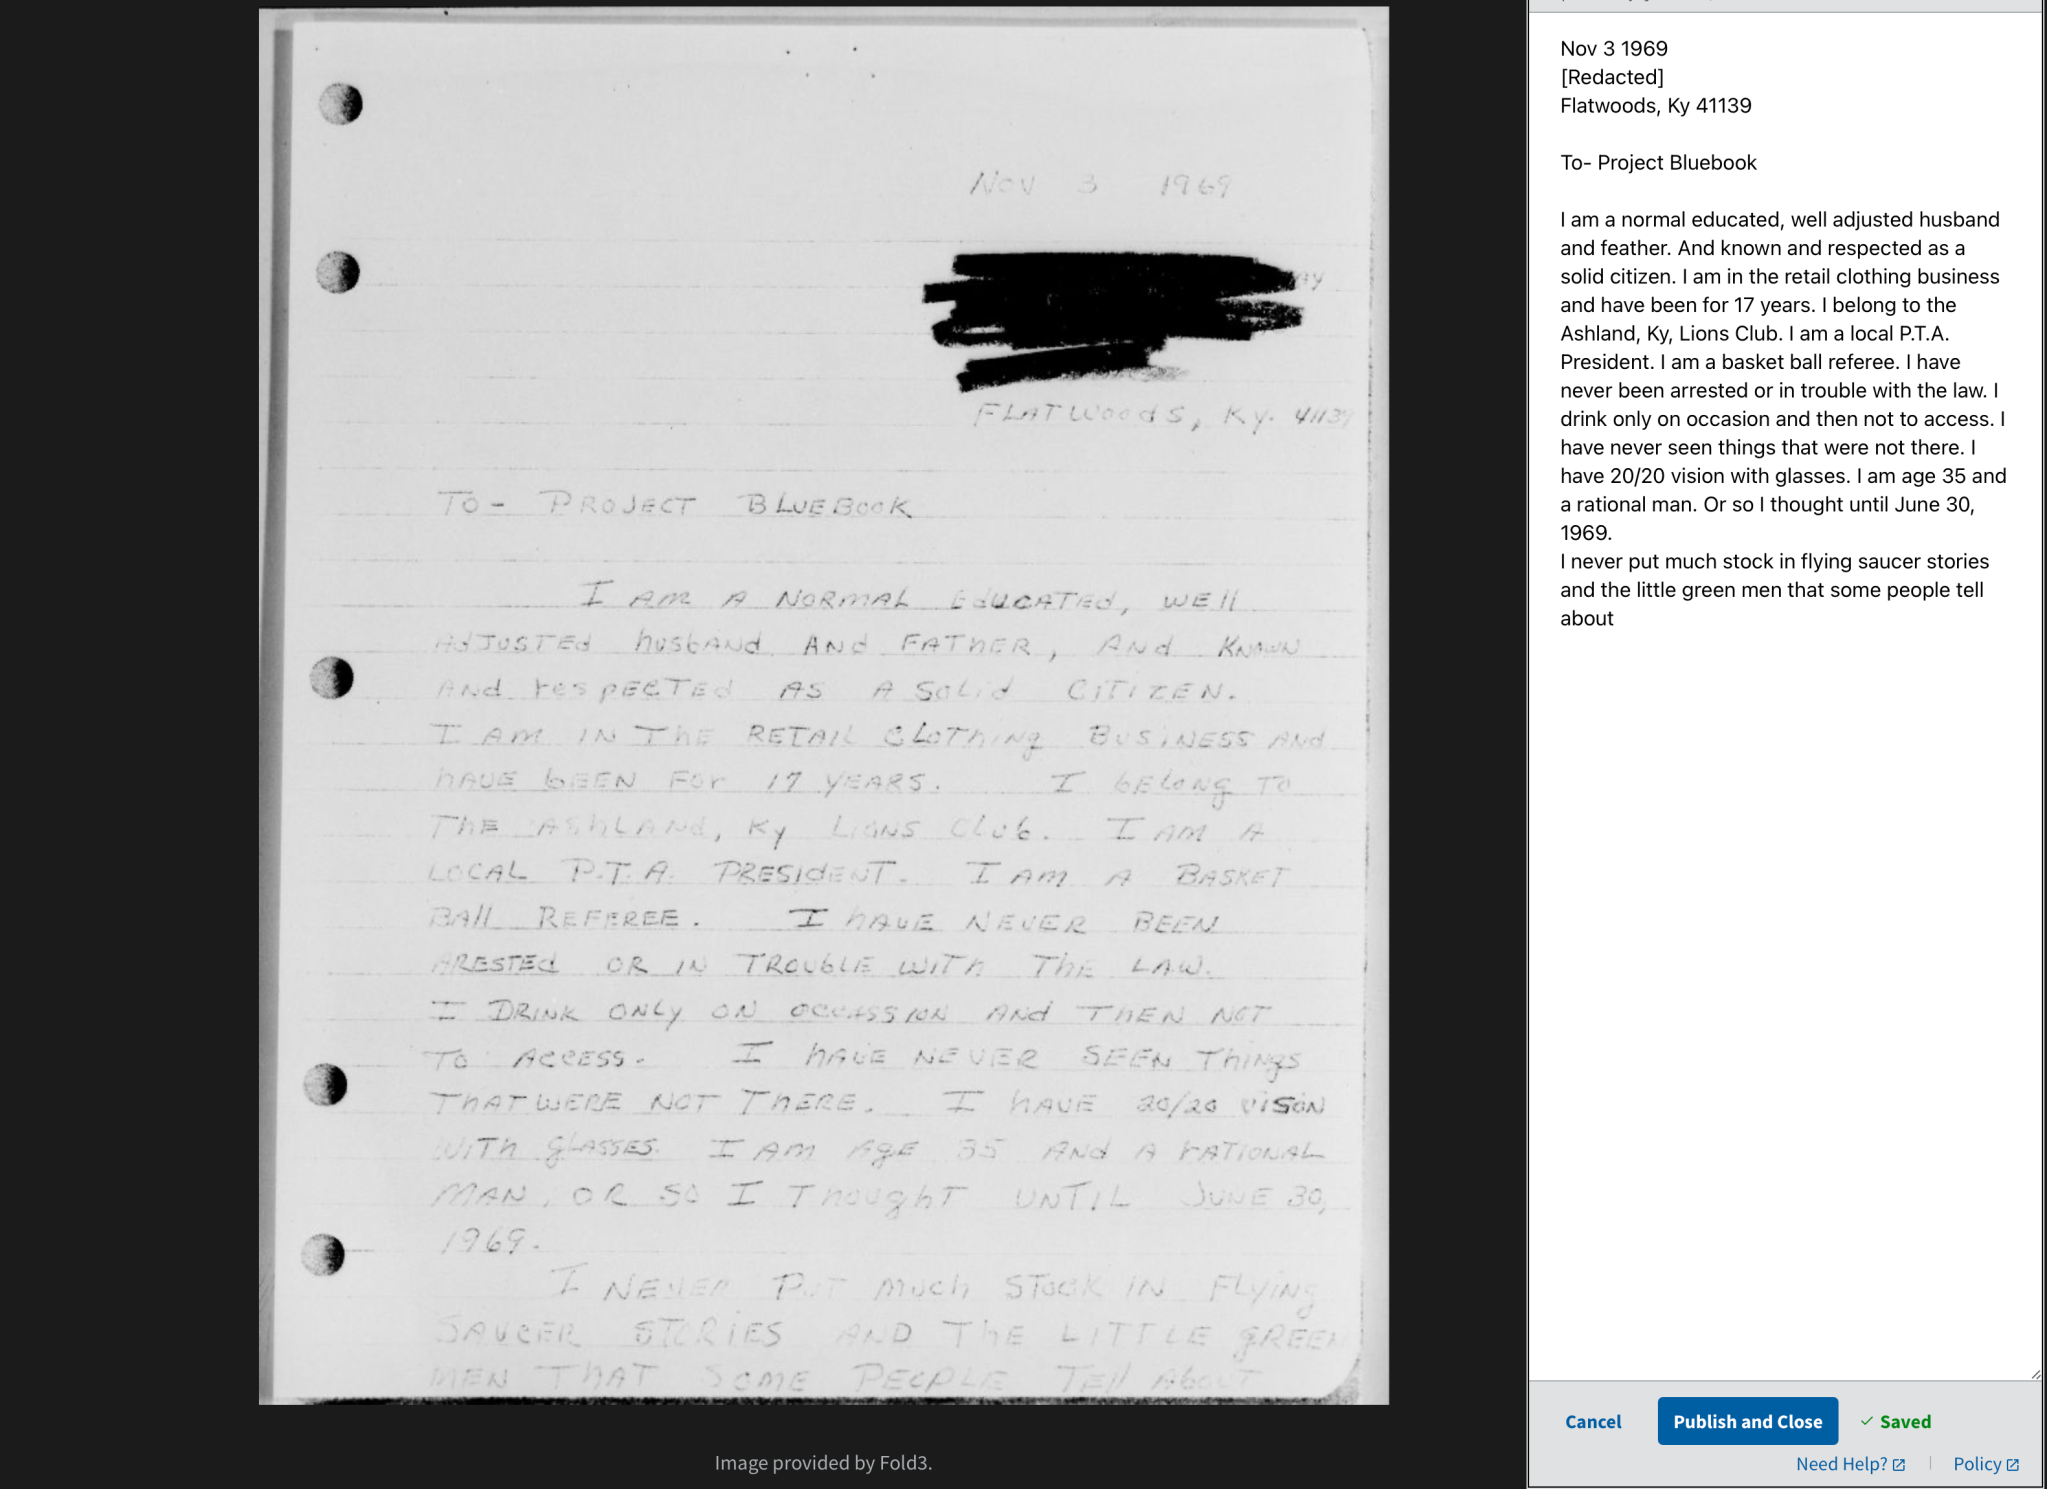 NOV 3 1969
AY
FLATWOODS, KY. 41139
TO- PROJECT BLUEBOOK
I AM A NORMAL EDUCATED, WELL
ADJUSTED HUSBAND AND FATHER, AND KNOWN
AND RESPECTED AS A SOLID CITIZEN.
I AM IN THE RETAIL CLOTHING BUSINESS AND
HAVE BEEN FOR 17 YEARS. I BELONG TO
THE ASHLAND, KY LIONS CLUB. I AM A
LOCAL P.T.A. PRESIDENT. I AM A BASKET
BALL REFEREE. I HAVE NEVER BEEN
ARESTED OR IN TROUBLE WITH THE LAW.
I DRINK ONLY ON OCCASSION AND THEN NOT
TO ACCESS. I HAVE NEVER SEEN THINGS
THAT WERE NOT THERE. I HAVE 20/20 VISON
WITH GLASSES. I AM AGE 35 AND A RATIONAL
MAN, OR SO I THOUGHT UNTIL JUNE 30,
1969.
I NEVER PUT MUCH STOCK IN FLYING
SAUCER STORIES AND THE LITTLE GREEN
MEN THAT SOME PEOPLE TELL ABOUT
Image provided by Fold3.
Nov 3 1969
[Redacted]
Flatwoods, Ky 41139
To- Project Bluebook
I am a normal educated, well adjusted husband
and feather. And known and respected as a
solid citizen. I am in the retail clothing business
and have been for 17 years. I belong to the
Ashland, Ky, Lions Club. I am a local P.T.A.
President. I am a basket ball referee. I have
never been arrested or in trouble with the law. I
drink only on occasion and then not to access. I
have never seen things that were not there. I
have 20/20 vision with glasses. I am age 35 and
a rational man. Or so I thought until June 30,
1969.
I never put much stock in flying saucer stories
and the little green men that some people tell
about
Cancel Publish and Close Saved
Need Help? Policy